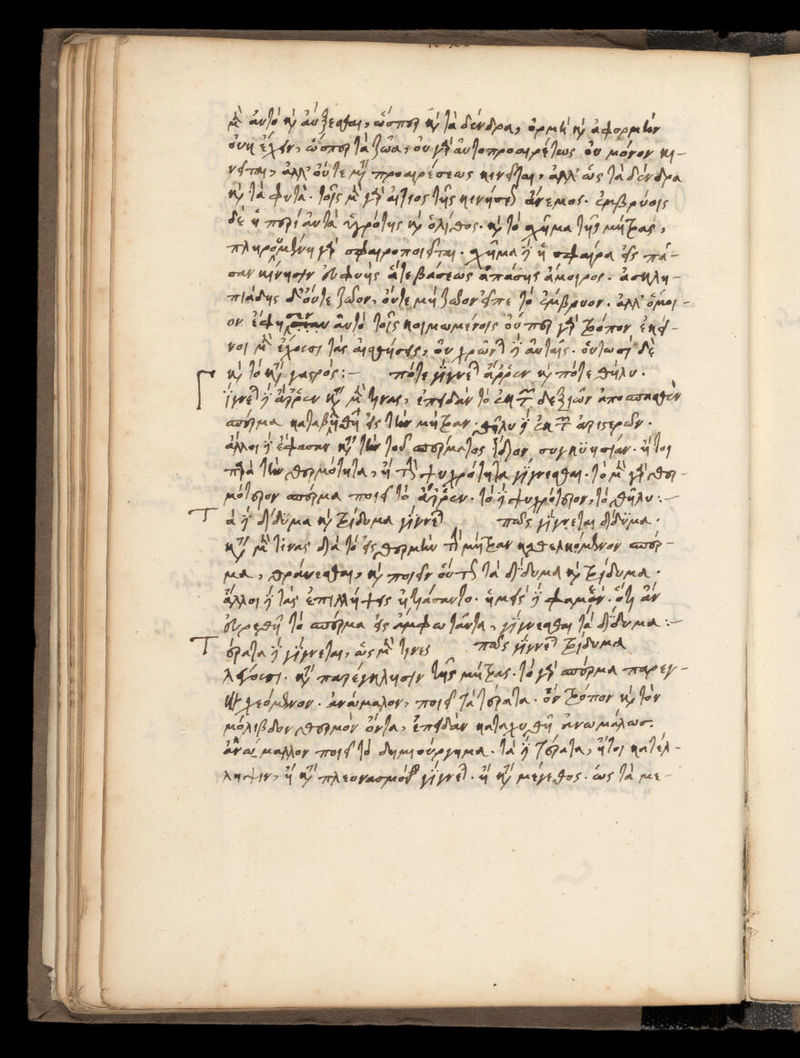 μὲν αὐτὸ καὶ αὔξεσθαι, ὥσπερ καὶ τὰ δένδρα, ὁρμὴν καὶ ἀφορμὴν
οὐκ ἔχειν, ὥσπερ τὰ ζῶα, οὐ γὰρ αὐτοπροαιρέτως οὐ μόνον κι-
νεῖται, ἀλλ' οὔτε κατὰ προαιρέσεως κινεῖται, ἀλλ' ὡς τὰ δένδρα
καὶ τὰ φυτὰ. τοῖς μὲν γὰρ αἴτιος τῆς κινήσεως ἄνεμος. ἐμβρύοις
δὲ ἡ περὶ αὐτὰ ὑγρότης καὶ ὄλισθος. καὶ τὸ σχῆμα τῆς μήτρας,
πληρουμένη γὰρ σφαιροποιεῖται. σχῆμα δὲ ἡ σφαῖρα εἰς πᾶ-
σαν κίνησιν εὐφυὴς ἅτε βάσεως ἁπάσης ἄμοιρος. ἀσκλη-
πιάδης δ' οὔτε ζῶον, οὔτε μὴ ζῶον εἶπε τὸ ἔμβρυον. ἀλλ' ὅμοι-
ον ἔφησεν αὐτὸ τοῖς κοιμωμένοις ὅνπερ γὰρ τρόπον ἐκεῖ-
νοι μὲν ἔχουσι τὰς αἰσθήσεις, οὐ χρῶνται δὲ αὐταῖς. οὕτωσὶ δὲ
καὶ τὸ κατὰ γαστρός:— πότε γίγνεται ἄρρεν καὶ πότε θῆλυ.
Γίγνεται δὲ ἄρρεν κατὰ μέν τινας, ἐπειδὰν τὸ ἐκ τῶν δεξιῶν ἀποσπασθὲν
σπέρμα καταβληθῇ εἰς τὴν μήτραν. θῆλυ δὲ ἐκ τῶν ἀριστερῶν.
ἄλλοι δὲ ἔφασαν κατὰ τὴν τοῦ σπέρματος συγκίνησιν. ἤτοι
παρὰ τὴν θερμότητα, ἢ τὴν ψυχρότητα γίγνεσθαι. τὸ μὲν γὰρ θερ-
μότερον σπέρμα ποιεῖ τὸ ἄρρεν. τὸ δὲ ψυχρότερον, τὸ θῆλυ:—
Τὰ δὲ δίδυμα καὶ τρίδυμα γίγνεται πῶς γίγνεται δίδυμα.
κατὰ μέν τινας διὰ τὸ εἰς θερμὴν τὴν μήτραν καθελκόμενον σπέρ-
μα, θραύεσθαι, καὶ ποιεῖν οὕτως τὰ δίδυμα καὶ τρίδυμα.
ἄλλοι δὲ τὰς ἐπισυλλήψεις ᾐτιάσαντο. ἡμεῖς δὲ φαμὲν. ὅτι ἂν
εὑρεθῇ τὸ σπέρμα εἰς ἄμφω ταῦτα, γίγνεσθαι τὰ δίδυμα:—
Τέρατα δὲ γίγνεται, ὡς μέν τινες πῶς γίγνεται τρίδυμα
λέγουσι. κατὰ παρέγκλησιν τῆς μήτρας. τὸ γὰρ σπέρμα παρεγ-
χεόμενον. ἀνώμαλον, ποιεῖ τὰ τέρατα. ὃν τρόπον καὶ τὸν
μόλιβδον θερμὸν ὄντα, ἐπειδὰν καταχυθῇ ἀνωμάλως.
ἀνώμαλλον ποιεῖ τὸ δημιούργημα. τὰ δὲ τέρατα, ἤτοι κατ' ἔλ-
λειψιν, ἢ κατὰ πλεονασμὸν γίγνεται. ἢ κατὰ μέγεθος. ὡς τὰ με-